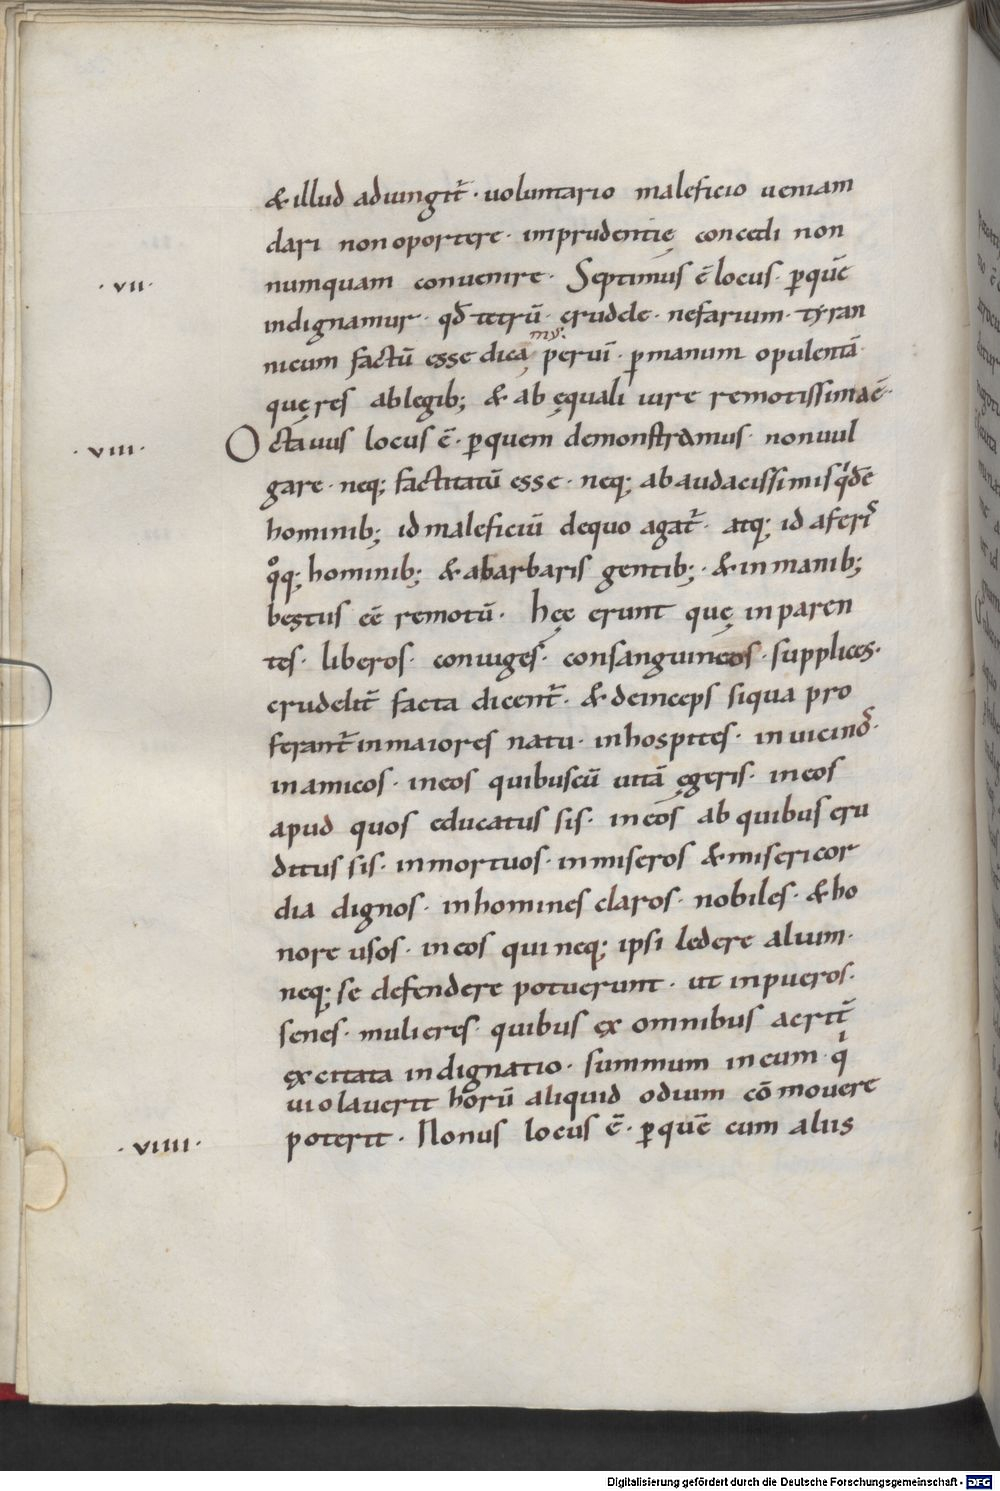 & illud adiungit᷑ · uoluntario maleficio ueniam
dari non oportere · imprudentię concedi non
numquam conuenire · Septimus ē locus · ꝑquē
· VII ·
indignamur · qđ tetrū · crudele · nefarium · tyran
nicum factū esse dicam᷒ per uī · ꝑ manum opulentā ·
quę res ab legib; & ab ęquali iure remotissima ē ·
· VIII ·
Octauus locus ē · ꝑquem demonstramus · non uul
gare · neq; factitatū esse · neq; ab audacissimis qͥdē
hominib; id maleficiū de quo agat᷑ · atq; id a ferīs
qͦq; hominib; & a barbaris gentib; · & inmanib;
bestiis eē remotū · hęc erunt quę in paren
tes · liberos · coniuges · consanguineos · supplices ·
crudelit᷑ facta dicent᷑ · & deinceps siqua pro
ferant᷑ in maiores natu · in hospites · in uicinos ·
in amicos · in eos quibuscū uitā egeris · in eos
apud quos educatus sis · in eos ab quibus eru
ditus sis · in mortuos · in miseros & misericor
dia dignos · in homines claros · nobiles · & ho
nore usos · in eos qui neq; ipsi ledere alium ·
neq; se defendere potuerunt · ut in pueros ·
senes · mulieres · quibus ex omnibus acrit᷑
excitata indignatio · summum in eum · qͥ
uiolauerit horū aliquid odium cōmouere
poterit · Nonus locus ē · ꝑquē cum aliis
· VIIII ·
Digitalisierung gefördert durch die Deutsche Forschungsgemeinschaft - DFG